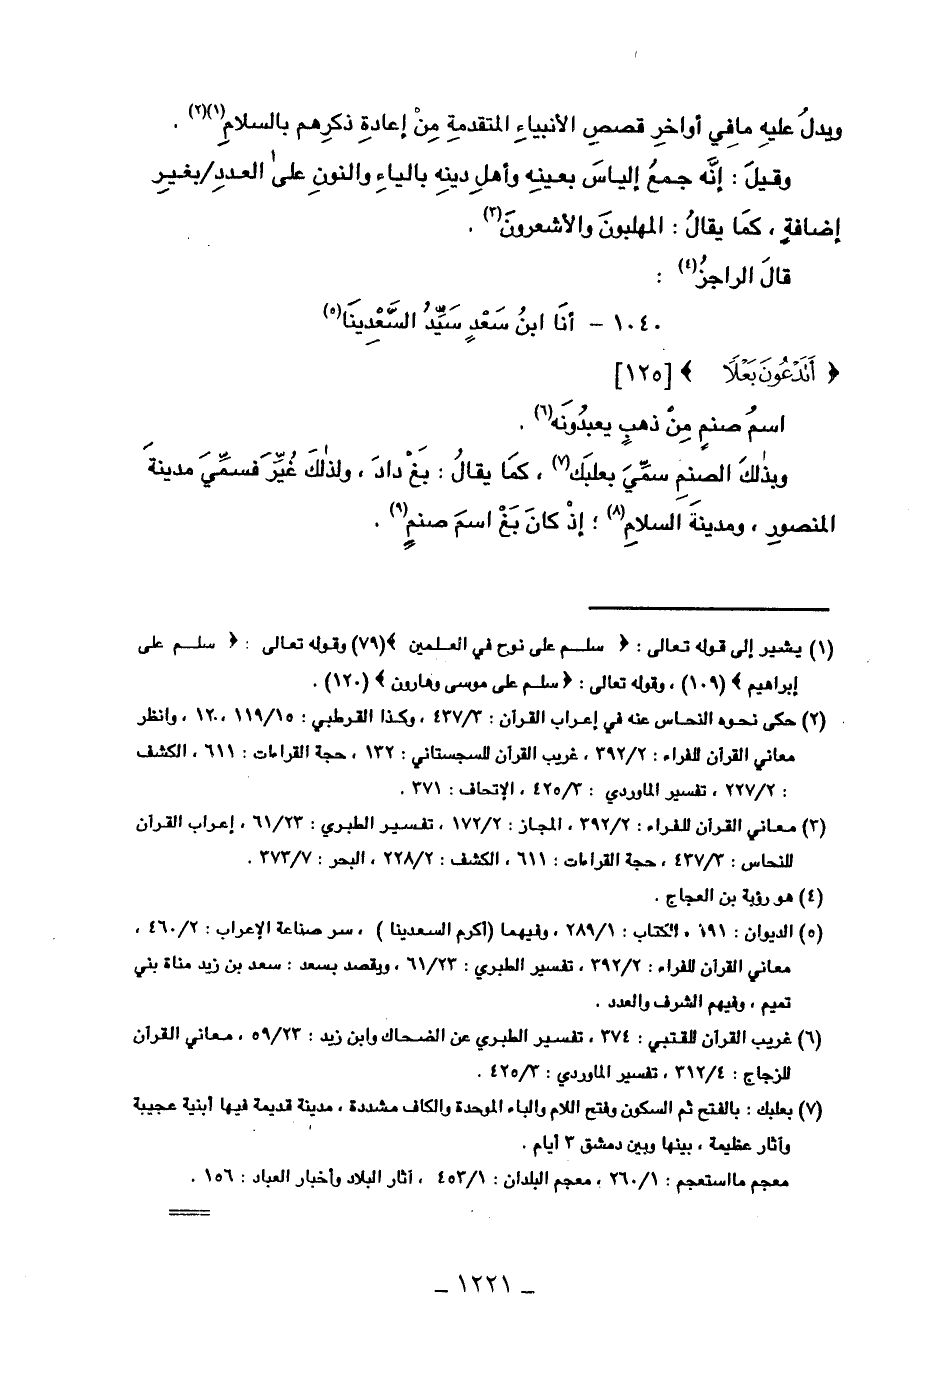 ويدلُ عليهِ مافي أواخرِ قصصِ الأنبياءِ المتقدمةِ مِنْ إعادةِ ذكرِهم بالسلامِ(١)(٢) .
وقيلَ : إنَّه جمعُ إلياسَ بعينِه وأهلِ دينِه بالياءِ والنونِ علىٰ العددِ/بغيرِ
إضافةٍ ، كمَا يقالُ : المهلبونَ والأشعرونَ(٣) .
قالَ الراجزُ(٤) :
١٠٤٠ - أنَا ابنُ سَعْدٍ سَيِّدُ السَّعْدِينَا(٥)
﴿ أَتَدْعُونَ بَعْلًا ﴾ [١٢٥]
اسمُ صنمٍ مِنْ ذهبٍ يعبدُونَه(٦) .
وبذٰلكَ الصنمِ سمِّيَ بعلبَك(٧) ، كمَا يقالُ : بغْ دادَ ، ولذٰلكَ غُيِّرَ فسمِّيَ مدينةَ
المنصورِ ، ومدينةَ السلامِ(٨) ؛ إذْ كانَ بَغْ اسمَ صنمٍ(٩) .
(١) يشير إلى قوله تعالى : ﴿ سلــم على نوح في العـلـمين ﴾(٧٩) وقوله تعالى : ﴿ سلــم على
إبراهيم ﴾ (١٠٩) ، وقوله تعالى : ﴿سلـم على موسى وهارون ﴾ (١٢٠) .
(٢) حكى نحوه النحاس عنه في إعراب القرآن : ٤٣٧/٣ ، وكذا القرطبي : ١١٩/١٥ ،١٢٠ ، وانظر
معاني القرآن للفراء : ٣٩٢/٢ ، غريب القرآن للسجستاني : ١٣٢ ، حجة القراءات : ٦١١ ، الكشف
: ٢٢٧/٢ ، تفسير الماوردي : ٤٢٥/٣ ، الإتحاف : ٣٧١ .
(٣) معاني القرآن للفراء : ٣٩٢/٢ ، المجاز : ١٧٢/٢ ، تفسير الطبري : ٦١/٢٣ ، إعراب القرآن
للنحاس : ٤٣٧/٣ ، حجة القراءات : ٦١١ ، الكشف : ٢٢٨/٢ ، البحر : ٣٧٣/٧ .
(٤) هو رؤبة بن العجاج .
(٥) الديوان : ١٩١ ، الكتاب : ٢٨٩/١ ، وفيهما (أكرم السعدينا ) ، سر صناعة الإعراب : ٤٦٠/٢ ،
معاني القرآن للفراء : ٣٩٢/٢ ، تفسير الطبري : ٦١/٢٣ ، ويقصد بسعد : سعد بن زيد مناة بني
تميم ، وفيهم الشرف والعدد .
(٦) غريب القرآن للقتبي : ٣٧٤ ، تفسير الطبري عن الضحاك وابن زيد : ٥٩/٢٣ ، معاني القرآن
للزجاج : ٣١٢/٤ ، تفسير الماوردي : ٤٢٥/٣ .
(٧) بعلبك : بالفتح ثم السكون وفتح اللام والباء الموحدة والكاف مشددة ، مدينة قديمة فيها أبنية عجيبة
وآثار عظيمة ، بينها وبين دمشق ٣ أيام .
معجم مااستعجم : ٢٦٠/١ ، معجم البلدان : ٤٥٣/١ ، آثار البلاد وأخبار العباد : ١٥٦ .
ـ ١٢٢١ ـ